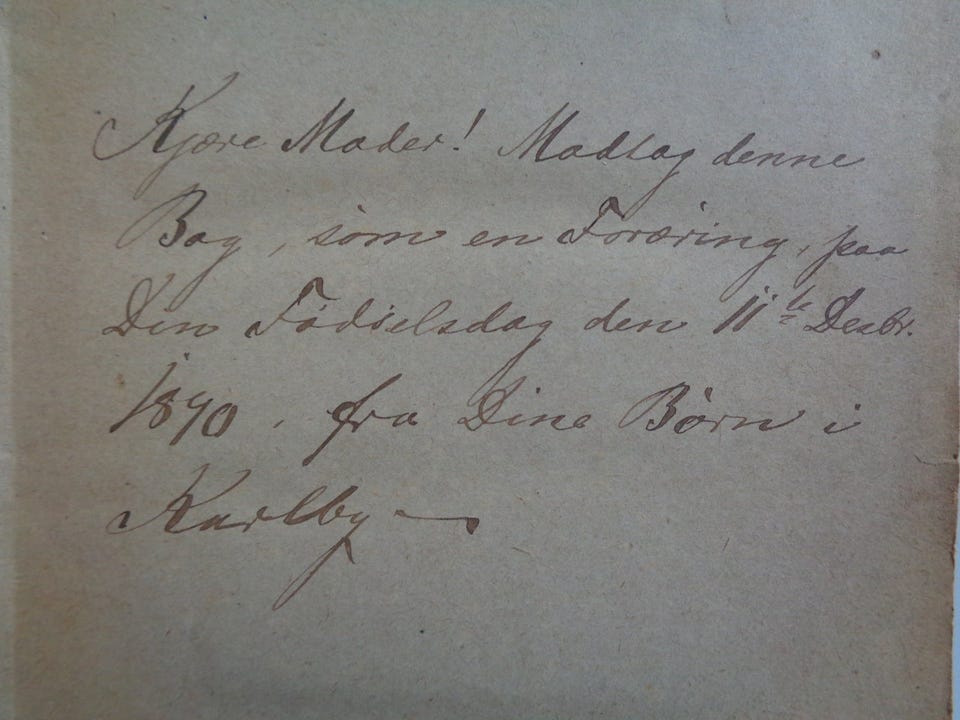 Kjære Moder! Modtag denne
Bog, som en Foræring, paa
Din Fødselsdag den 11te Decbr.
1890, fra Dine Børn i
Karlby —